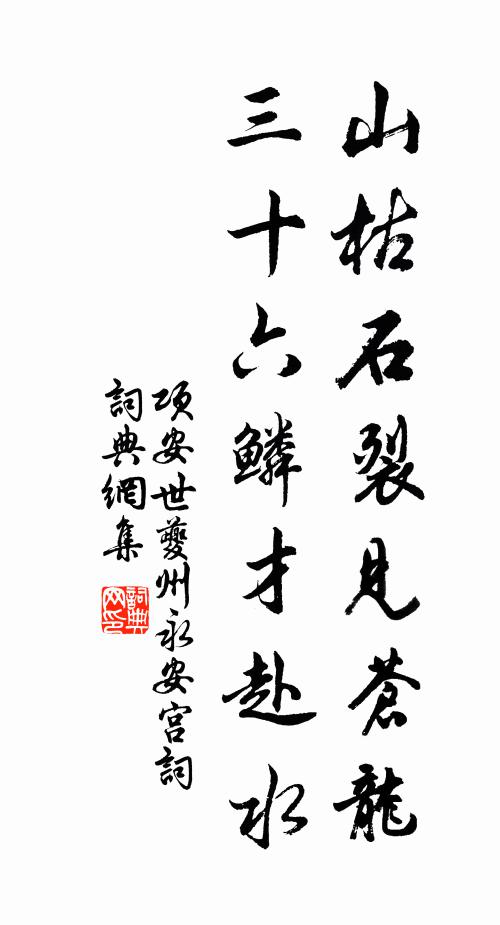 山枯石裂見蒼龍
三十六鱗才赴水
項安世夔州永安宮詞
詞典網集
詞典網印